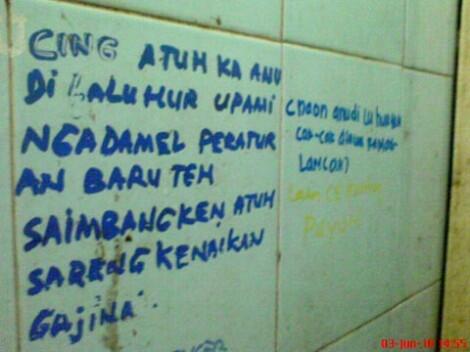 CING ATUH KA ANU
DI LALUHUR UPAMI
NGADAMEL PERATUR
AN BARU TEH
SAIMBANGKEN ATUH
SARENG KENAIKAN
GAJINA.
cnaon anu di luhur
Lain
Payun
03-Jun-10 14:55